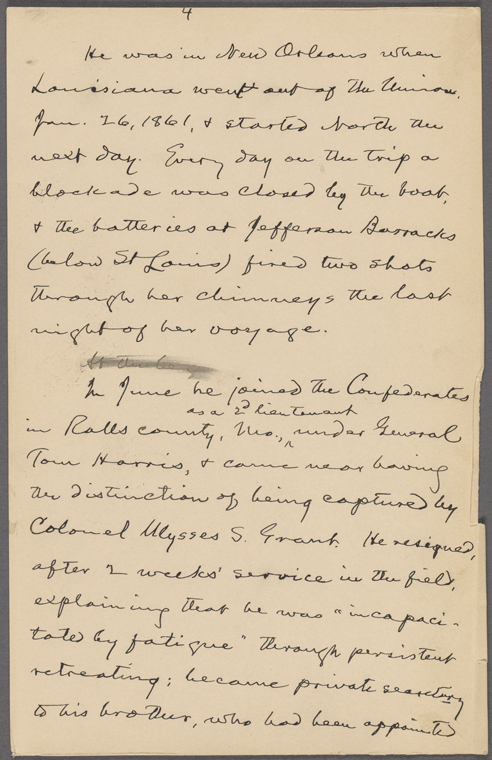 4
He was in New Orleans when
Louisiana went out of the Union,
Jan. 26, 1861, & started North the
next day. Every day on the trip a
blockade was closed by the boat,
& the batteries at Jefferson Barracks
(below St Louis) fired two shots
through her chimneys the last
night of her voyage.
At the be
In June he joined the Confederates
as a 2d lieutenant
in Ralls county, Mo., under General
Tom Harris, & came near having
the distinction of being captured by
Colonel Ulysses S. Grant. He resigned,
after 2 weeks' service in the field,
explaining that he was "incapaci-
tated by fatigue" through persistent
retreating; became private secretary
to his brother, who had been appointed